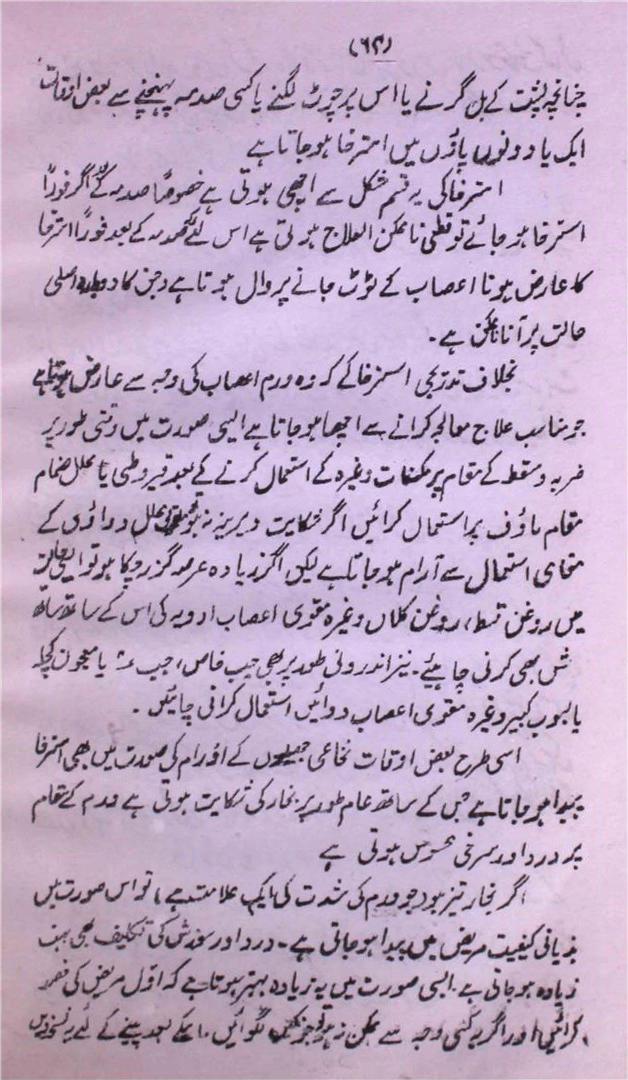 (۶۴)
چنانچہ پشت کے بل گرنے یا اس پر چوٹ لگنے یا کسی صدمہ پہنچنے سے بعض اوقات
ایک یا دونوں پاؤں میں استرخا ہو جاتا ہے
استرخا کی یہ قسم مشکل سے اچھی ہوتی ہے خصوصاً صدمہ کے اگر فوراً
استرخا ہو جائے تو قطعی ناممکن العلاج ہوتی ہے اس لئے صدمہ کے بعد فوراً استرخا
کا عارض ہونا اعصاب کے ٹوٹ جانے پر دال ہوتا ہے جن کا دوبارہ اصلی
حالت پر آنا ناممکن ہے۔
بخلاف تدریجی استرخا کے کہ وہ ورم اعصاب کی وجہ سے عارض ہوتا ہے
جو مناسب علاج معالجہ کرانے سے اچھا ہو جاتا ہے ایسی صورت میں وقتی طور پر
ضربہ و سقطہ کے مقام پر مسکنات وغیرہ کے استعمال کرنے کے بعد قیروطی یا محلل ضماد
مقام ماؤف پر استعمال کرائیں اگر شکایت دیرینہ نہ ہو محلل دواؤں کے
مقامی استعمال سے آرام ہو جاتا ہے لیکن اگر زیادہ عرصہ گزر چکا ہو تو ایسی حالت
میں روغن قسط، روغن کلاں وغیرہ مقوی اعصاب ادویہ کی اس کے ساتھ ساتھ
مالش بھی کرنی چاہیئے۔ نیز اندرونی طور پر بھی حب خاص، حب یا معجون کچلہ
یا لبوب کبیر وغیرہ مقوی اعصاب دوائیں استعمال کرانی چاہئیں۔
اسی طرح بعض اوقات نخاعی جھلیوں کے اورام کی صورت میں بھی استرخا
پیدا ہو جاتا ہے جس کے ساتھ عام طور پر بخار کی شکایت ہوتی ہے ورم کے مقام
پر درد اور سرخی محسوس ہوتی ہے
اگر بخار تیز ہو (جو ورم کی شدت کی ایک علامت ہے) تو اس صورت میں
ہذیانی کیفیت مریض میں پیدا ہو جاتی ہے۔ درد اور سوزش کی تکلیف بھی بہت
زیادہ ہو جاتی ہے۔ ایسی صورت میں یہ زیادہ بہتر ہوتا ہے کہ اوّل مریض کی فصد
کرائیں اور اگر یہ کسی وجہ سے ممکن نہ ہو تو جونکیں لگوائیں۔ اسکے بعد پینے کے لئے یہ نسخہ دیں